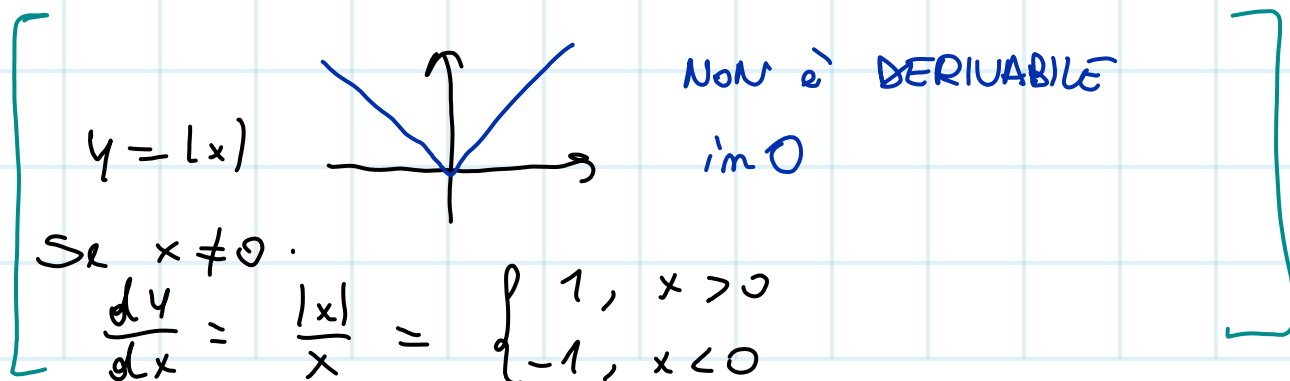 NON è DERIVABILE
y = |x|
in 0
Se x ≠ 0 .
dy/dx = |x|/x = { 1, x > 0
-1, x < 0